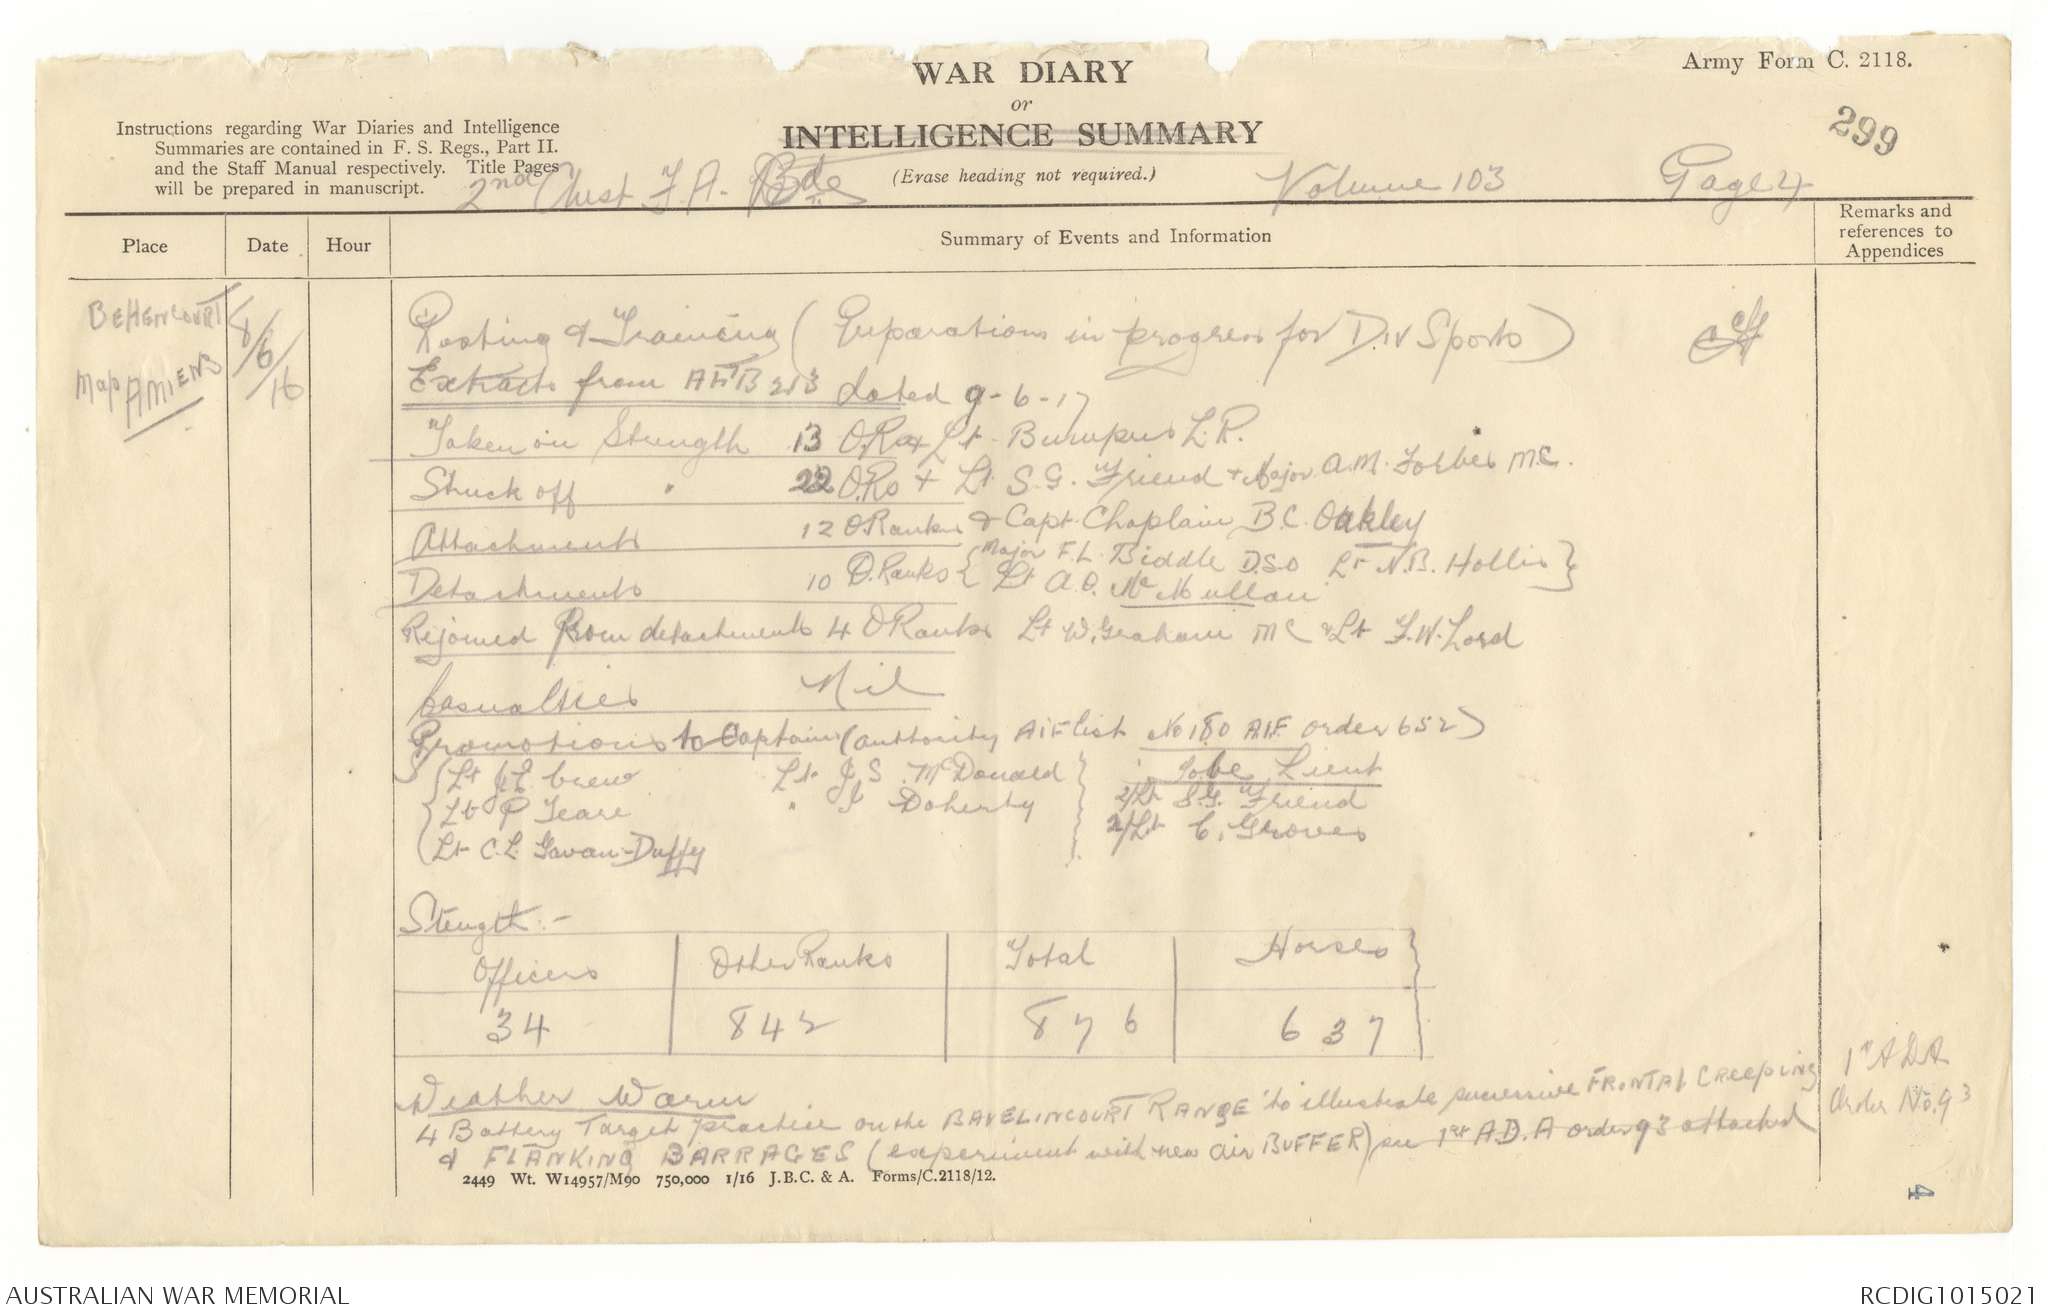 WAR DIARY
or
INTELLIGENCE SUMMARY
(Erase heading not required.)
Army Form C. 2118.
299
Instructions regarding War Diaries and Intelligence
Summaries are contained in F. S. Regs., Part II.
and the Staff Manual respectively. Title Pages
will be prepared in manuscript.
2nd Aust F. A. Bde
Volume 103
Page 4
Place
Date
Hour
Summary of Events and Information
Remarks and
references to
Appendices
BEHENCOURT
Map AMIENS
8/6/16
Resting & Training (Preparations in progress for Div Sports)
Extracts from AFB 213 dated 9-6-17
Taken on Strength 13 O.Rs + Lt. Bumpus L.R.
Struck off " 22 O.Rs + Lt S.G. Friend + Major A.M. Forbes M.C.
Attachments 12 O.Ranks & Capt. Chaplain B.C. Oakley
Detachments 10 O.Ranks { Major F.L. Biddle D.S.O Lt N.B. Hollis }
Lt A.O. McMullan
Rejoined from detachments 4 O Ranks Lt W. Graham MC & Lt F.W. Lord
Casualties Nil
Promotions to Captains (authority AIF list No 180 AIF order 652)
{ Lt J.L. Crew Lt J S McDonald } To be Lieut
Lt P Teare " J Doherty 2/Lt S.G. Friend
Lt C.L. Gavan-Duffy 2/Lt C. Groves
Strength :-
Officers Other Ranks Total Horses
34 842 876 637
Weather Warm
4 Battery Target practice on the BAVELINCOURT RANGE to illustrate successive FRONTAL CREEPING
& FLANKING BARRAGES (experiment with new air BUFFER) see 1st A.D.A order 93 attached
1st A D A
Order No. 93
2449 Wt. W14957/M90 750,000 1/16 J.B.C. & A. Forms/C.2118/12.
4
AUSTRALIAN WAR MEMORIAL
RCDIG1015021